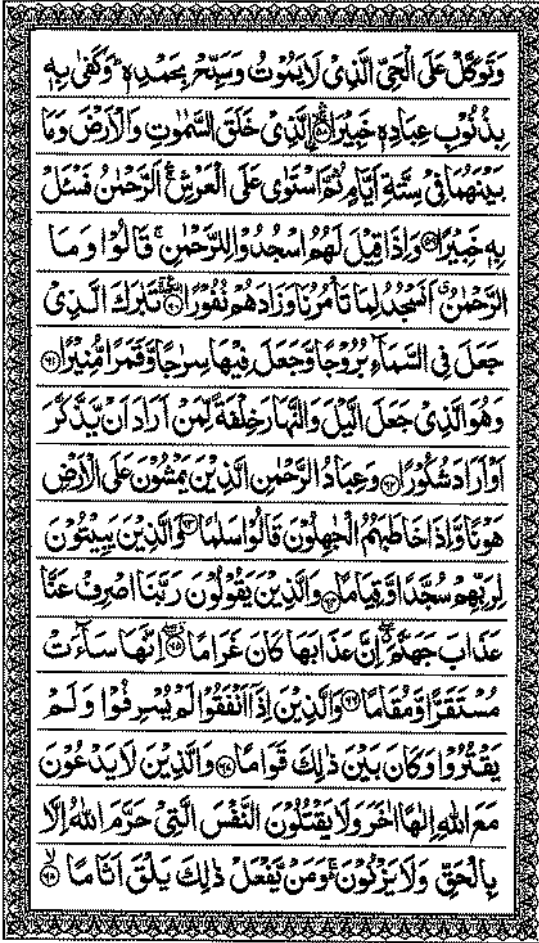 وَتَوَكَّلْ عَلَى الْحَيِّ الَّذِىْ لَا يَمُوْتُ وَسَبِّحْ بِحَمْدِهٖ ؕ وَكَفٰى بِهٖ
بِذُنُوْبِ عِبَادِهٖ خَبِيْرًا ۚۛ ﴿۵۸﴾ الَّذِىْ خَلَقَ السَّمٰوٰتِ وَالْاَرْضَ وَمَا
بَيْنَهُمَا فِىْ سِتَّةِ اَيَّامٍ ثُمَّ اسْتَوٰى عَلَى الْعَرْشِ ۛۚ اَلرَّحْمٰنُ فَسْئَلْ
بِهٖ خَبِيْرًا ﴿۵۹﴾ وَاِذَا قِيْلَ لَهُمُ اسْجُدُوْا لِلرَّحْمٰنِ ۚ قَالُوْا وَمَا
الرَّحْمٰنُ ۗ اَنَسْجُدُ لِمَا تَاْمُرُنَا وَزَادَهُمْ نُفُوْرًا ﴿۶۰﴾ تَبٰرَكَ الَّذِىْ
جَعَلَ فِى السَّمَآءِ بُرُوْجًا وَّجَعَلَ فِيْهَا سِرٰجًا وَّقَمَرًا مُّنِيْرًا ﴿۶۱﴾
وَهُوَ الَّذِىْ جَعَلَ الَّيْلَ وَالنَّهَارَ خِلْفَةً لِّمَنْ اَرَادَ اَنْ يَّذَّكَّرَ
اَوْ اَرَادَ شُكُوْرًا ﴿۶۲﴾ وَعِبَادُ الرَّحْمٰنِ الَّذِيْنَ يَمْشُوْنَ عَلَى الْاَرْضِ
هَوْنًا وَّاِذَا خَاطَبَهُمُ الْجٰهِلُوْنَ قَالُوْا سَلٰمًا ﴿۶۳﴾ وَالَّذِيْنَ يَبِيْتُوْنَ
لِرَبِّهِمْ سُجَّدًا وَّقِيَامًا ﴿۶۴﴾ وَالَّذِيْنَ يَقُوْلُوْنَ رَبَّنَا اصْرِفْ عَنَّا
عَذَابَ جَهَنَّمَ ۖ اِنَّ عَذَابَهَا كَانَ غَرَامًا ﴿۶۵﴾ اِنَّهَا سَآءَتْ
مُسْتَقَرًّا وَّمُقَامًا ﴿۶۶﴾ وَالَّذِيْنَ اِذَاۤ اَنْفَقُوْا لَمْ يُسْرِفُوْا وَلَمْ
يَقْتُرُوْا وَكَانَ بَيْنَ ذٰلِكَ قَوَامًا ﴿۶۷﴾ وَالَّذِيْنَ لَا يَدْعُوْنَ
مَعَ اللّٰهِ اِلٰهًا اٰخَرَ وَلَا يَقْتُلُوْنَ النَّفْسَ الَّتِىْ حَرَّمَ اللّٰهُ اِلَّا
بِالْحَقِّ وَلَا يَزْنُوْنَ ۚ وَمَنْ يَّفْعَلْ ذٰلِكَ يَلْقَ اَثَامًا ۙ ﴿۶۸﴾